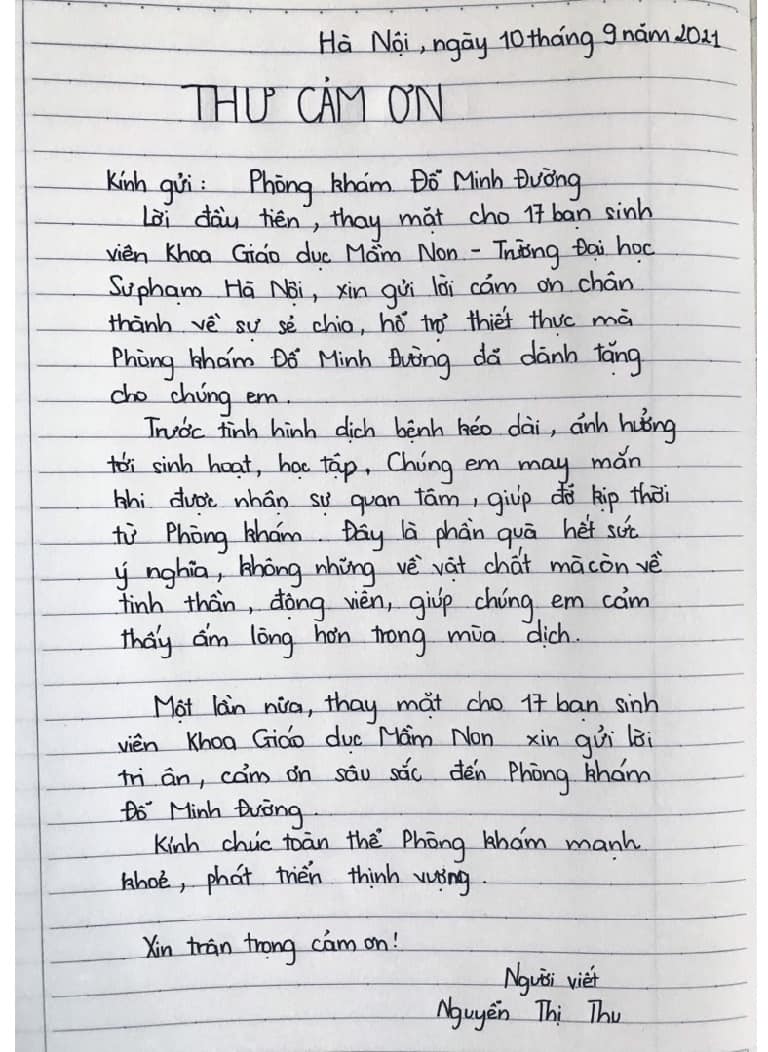 Hà Nội, ngày 10 tháng 9 năm 2021
THƯ CẢM ƠN
Kính gửi: Phòng khám Đỗ Minh Đường
Lời đầu tiên, thay mặt cho 17 bạn sinh
viên Khoa Giáo dục Mầm Non - Trường Đại học
Sư phạm Hà Nội, xin gửi lời cảm ơn chân
thành về sự sẻ chia, hỗ trợ thiết thực mà
Phòng khám Đỗ Minh Đường đã dành tặng
cho chúng em.
Trước tình hình dịch bệnh kéo dài, ảnh hưởng
tới sinh hoạt, học tập, Chúng em may mắn
khi được nhận sự quan tâm, giúp đỡ kịp thời
từ Phòng khám. Đây là phần quà hết sức
ý nghĩa, không những về vật chất mà còn về
tinh thần, động viên, giúp chúng em cảm
thấy ấm lòng hơn trong mùa dịch.
Một lần nữa, thay mặt cho 17 bạn sinh
viên Khoa Giáo dục Mầm Non xin gửi lời
tri ân, cảm ơn sâu sắc đến Phòng khám
Đỗ Minh Đường.
Kính chúc toàn thể Phòng khám mạnh
khoẻ, phát triển thịnh vượng.
Xin trân trọng cảm ơn!
Người viết
Nguyễn Thị Thu